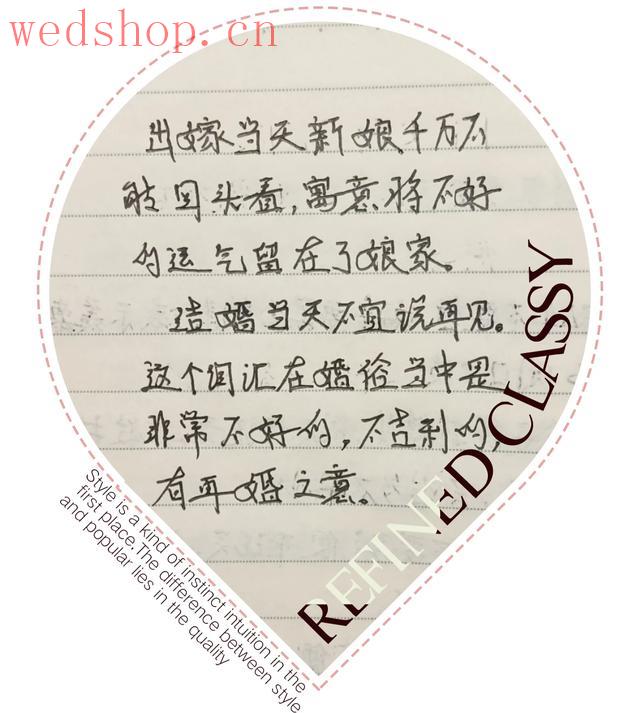 wedshop.cn
出嫁当天新娘千万不
能回头看,寓意将不好
的运气留在了娘家。
结婚当天不宜说再见。
这个词汇在婚俗当中是
非常不好的,不吉利的,
有再婚之意。
REFINED CLASSY
Style is a kind of instinct intuition in the
first place.The difference between style
and popular lies in the quality